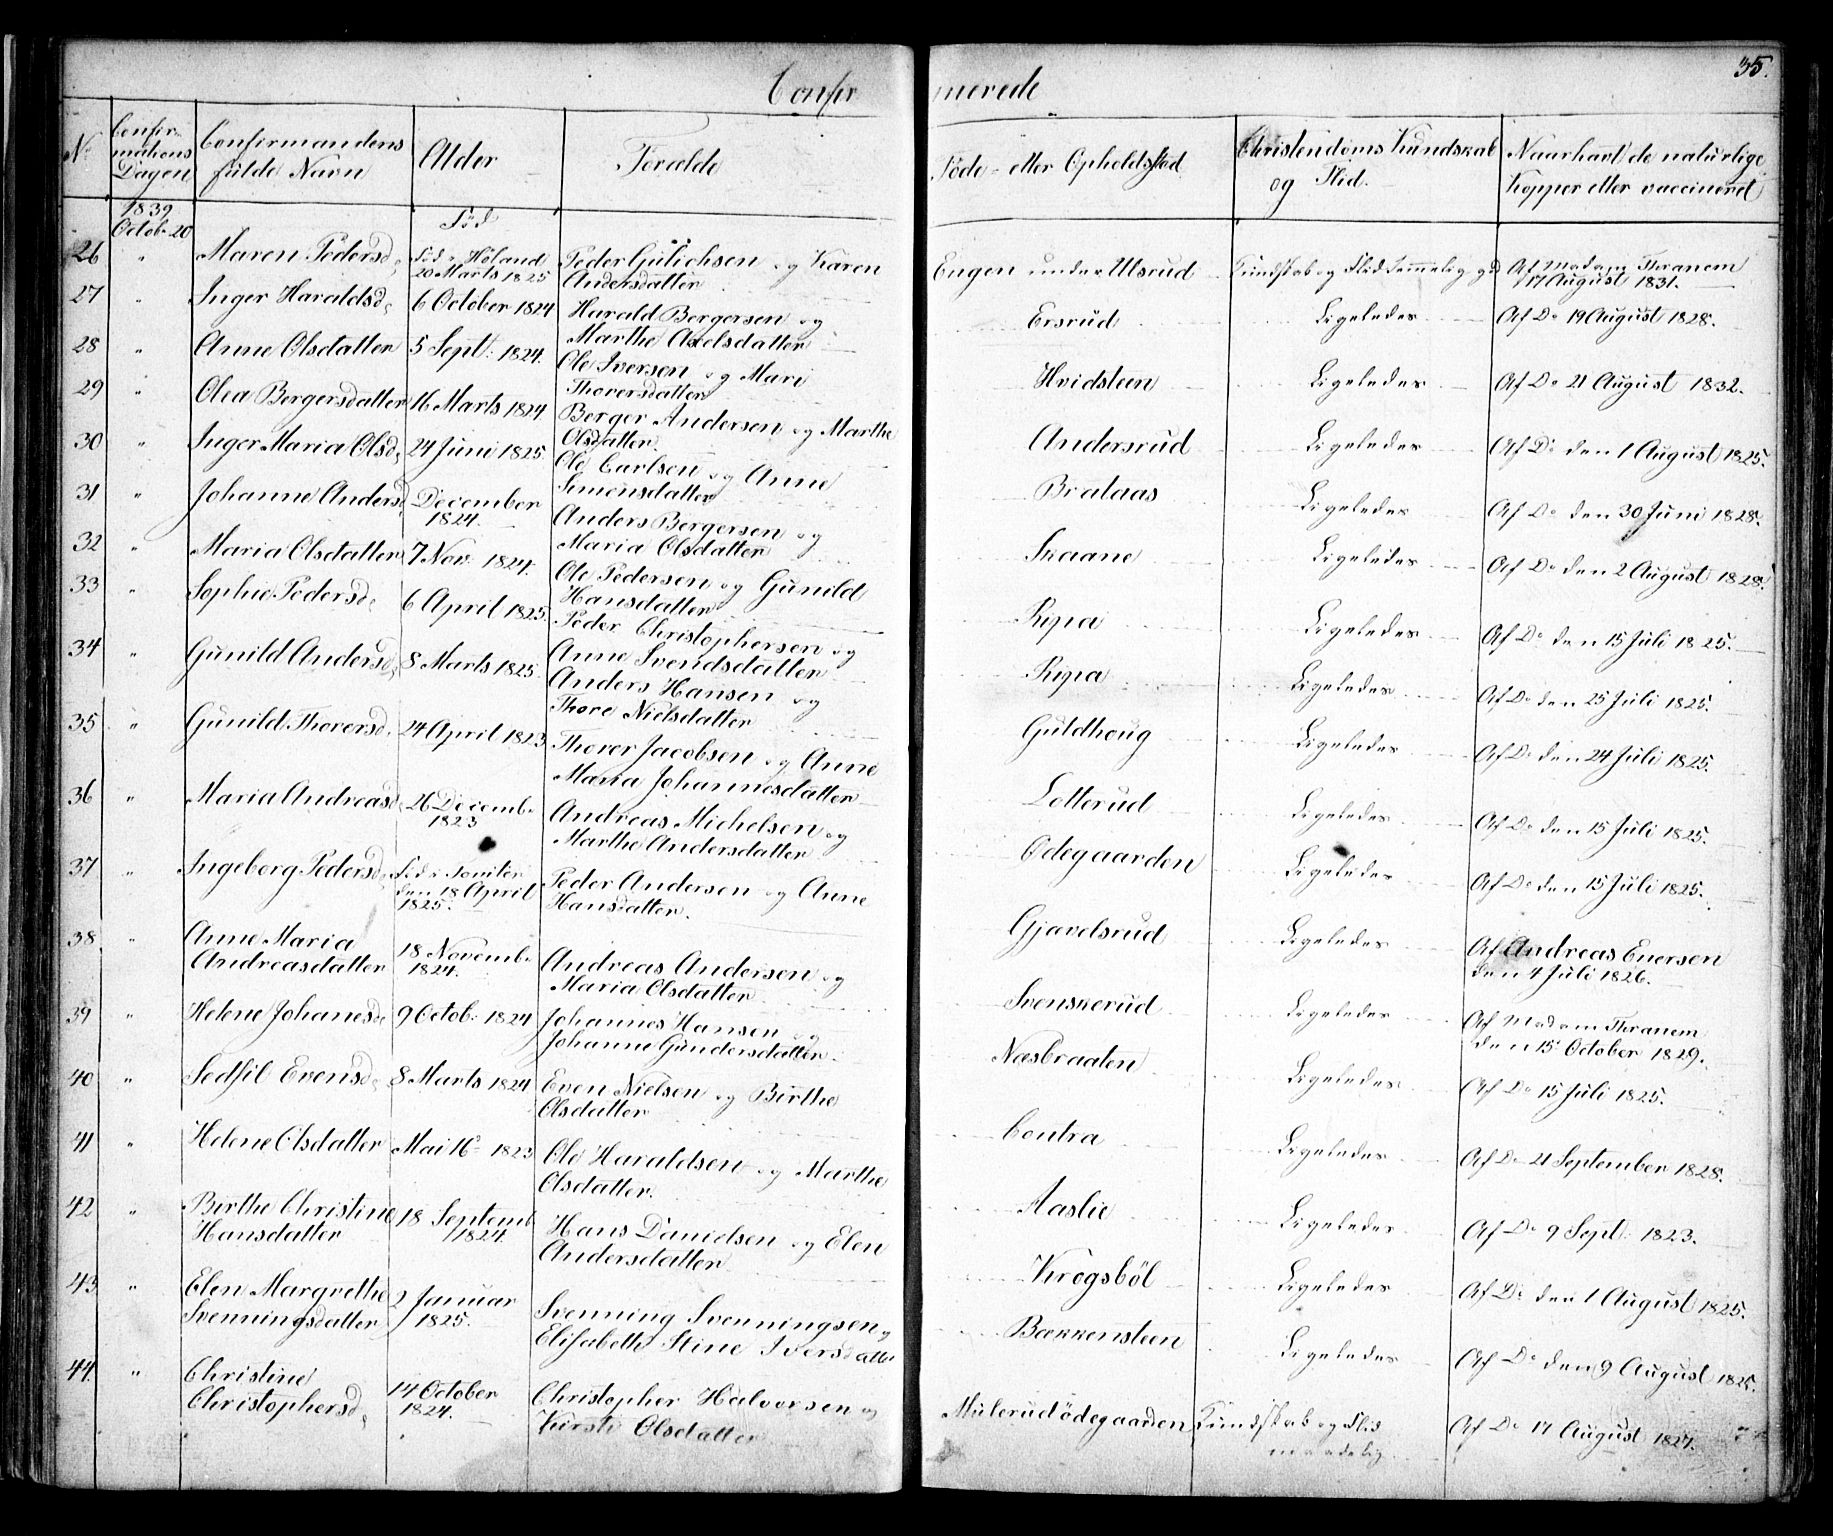 Confir merede
35.
No
Confir=
mations
Dagen
Confirmandens
fulde Navn
Alder
Forælde
Föde- eller Opholdssted
Christendoms Kundskab
og Flid.
Naar havt de naturlige
Kopper eller vaccineret
1839
Octob. 20
Föd
26 " Maren Pedersd. Föd i Höland
20 Marts 1825 Peder Gulichsen og Karen
Andersdatter Engen under Ulsrud Kundskab og Flid temmelig gd Af Madam Thranem
17 August 1831.
27 " Inger Haraldsd. 6 October 1824 Harald Bergersen og
Marthe Axelsdatter Ersrud Ligeledes Af Do 19 August 1828.
28 " Anne Olsdatter 5 Sept. 1824. Ole Iversen og Mari
Thoversdatter Hvidsteen Ligeledes Af Do 21 August 1832.
29 " Olea Bergersdatter 16 Marts 1824 Berger Andersen og Marthe
Olsdatter. Andersrud Ligeledes Af Do den 1 August 1825.
30 " Inger Maria Olsd. 24 Juni 1825 Ole Carlsen og Anne
Simensdatter Brataas Ligeledes Af Do den 30 Juni 1828.
31 " Johanne Andersd. December
1824. Anders Bergersen og
Maria Olsdatter Skaane Ligeledes Af Do den 2 August 1828.
32 " Maria Olsdatter 7 Nov. 1824. Ole Pedersen og Gunild
Hansdatter Ripa Ligeledes Af Do den 15 Juli 1825.
33 " Sophie Pedersd. 6 April 1825. Peder Christophersen og
Anne Svendsdatter Ripa Ligeledes Af Do den 25 Juli 1825.
34 " Gunild Andersd. 8 Marts 1825 Anders Hansen og
Thore Nielsdatter Guldhoug Ligeledes Af Do den 24 Juli 1825.
35 " Gunild Thoversd. 24 April 1823 Thorer Jacobsen og Anne
Maria Johannesdatter Lotterud Ligeledes Af Do den 15 Juli 1825.
36 " Maria Andreasd. 26 Decemb.
1823 Andreas Michelsen og
Marthe Andersdatter Ödegaarden Ligeledes Af Do den 15 Juli 1825.
37 " Ingeborg Pedersd. Föd i
den 18 April
1825. Peder Andersen og Anne
Hansdatter. Gjavelsrud Ligeledes Af Andreas Enersen
den 4 Juli 1826.
38 " Anne Maria
Andreasdatter 18 Novemb.
1824. Andreas Andersen og
Maria Olsdatter Svenskerud Ligeledes Af Madam Thranem
den 15 October 1829.
39 " Helene Johanesd. 9 Octob. 1824 Johannes Hansen og
Johanne Gundersdatter Næsbraaten Ligeledes Af Do 15 Juli 1825.
40 " Sedsil Evensd. 8 Marts 1824 Even Nielsen og Birthe
Olsdatter Contra Ligeledes Af Do 21 September 1828.
41 " Helene Olsdatter Mai 16 1823 Ole Haraldsen og Marthe
Olsdatter. Aaslie Ligeledes Af Do 9 Sept. 1823.
42 " Birthe Christine
Hansdatter 18 Septemb
1824. Hans Danielsen og Elen
Andersdatter Krogsböl Ligeledes Af Do den 1 August 1825.
43 " Elen Margrethe
Svenningsdatter 2 Januar
1825. Svenning Svenningsen og
Elisabeth Stine Iversdatter Bækkensteen Ligeledes Af Do den 9 August 1825.
44. " Christine
Christophersd. 14 October
1824. Christopher Halvorsen og
Kirsti Olsdatter Mulerudödegaarden Kundskab og Flid
maadelig Af Do 17 August 1827.